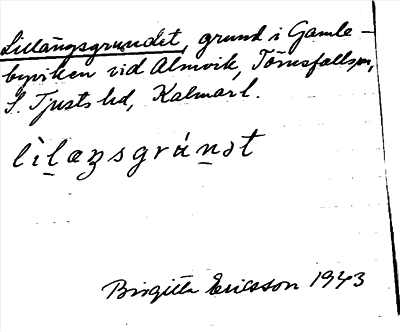 Lillängsgrundet, grund i Gamle-
byviken vid Almvik, Törnsfalls sn,
S. Tjusts hd, Kalmar l.
lìlæŋsgrúndt
Birgitta Ericsson 1943